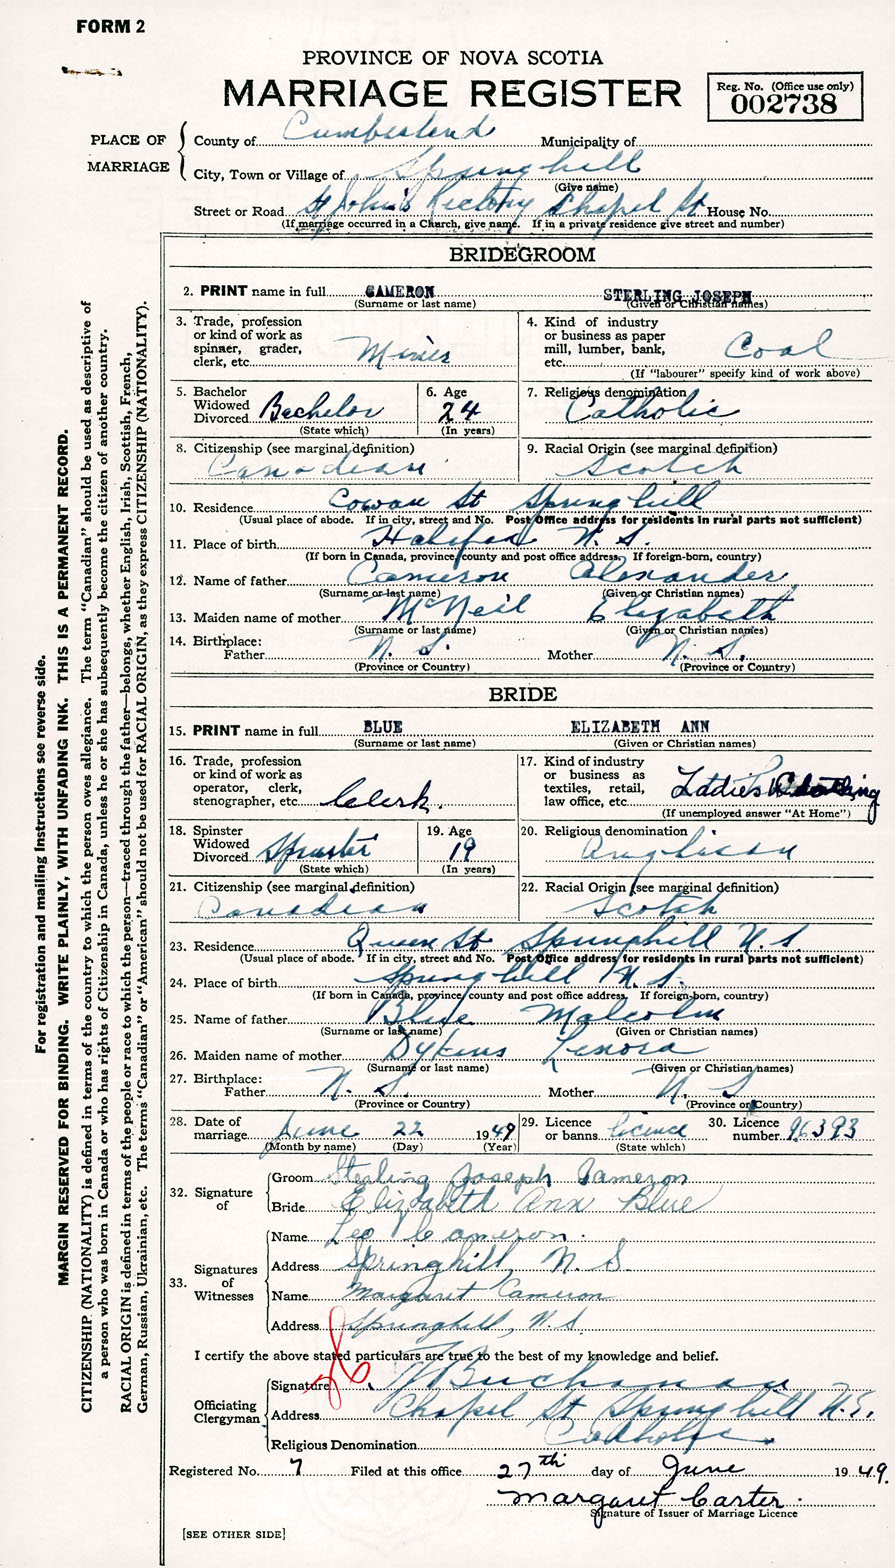 FORM 2
PROVINCE OF NOVA SCOTIA
MARRIAGE REGISTER
Reg. No. (Office use only)
002738
PLACE OF MARRIAGE
County of Cumberland Municipality of
City, Town or Village of Springhill
(Give name)
Street or Road St John's Rectory Chapel St House No.
(If marriage occurred in a Church, give name. If in a private residence give street and number)
BRIDEGROOM
2. PRINT name in full CAMERON STERLING JOSEPH
(Surname or last name) (Given or Christian names)
3. Trade, profession or kind of work as spinner, grader, clerk, etc. Miner
4. Kind of industry or business as paper mill, lumber, bank, etc. Coal
(If "labourer" specify kind of work above)
5. Bachelor Widowed Divorced Bachelor
(State which)
6. Age 24
(In years)
7. Religious denomination Catholic
8. Citizenship (see marginal definition) Canadian
9. Racial Origin (see marginal definition) Scotch
10. Residence Cowan St Springhill
(Usual place of abode. If in city, street and No. Post Office address for residents in rural parts not sufficient)
11. Place of birth Halifax N. S.
(If born in Canada, province, county and post office address. If foreign-born, country)
12. Name of father Cameron Alexander
(Surname or last name) (Given or Christian names)
13. Maiden name of mother McNeil Elizabeth
(Surname or last name) (Given or Christian names)
14. Birthplace:
Father N. S. Mother N. S.
(Province or Country) (Province or Country)
BRIDE
15. PRINT name in full BLUE ELIZABETH ANN
(Surname or last name) (Given or Christian names)
16. Trade, profession or kind of work as operator, clerk, stenographer, etc. Clerk.
17. Kind of industry or business as textiles, retail, law office, etc. Ladies Clothing
(If unemployed answer "At Home")
18. Spinster Widowed Divorced Spinster
(State which)
19. Age 19
(In years)
20. Religious denomination Anglican
21. Citizenship (see marginal definition) Canadian
22. Racial Origin (see marginal definition) Scotch
23. Residence Queen St Springhill N. S.
(Usual place of abode. If in city, street and No. Post Office address for residents in rural parts not sufficient)
24. Place of birth Springhill N. S.
(If born in Canada, province, county and post office address. If foreign-born, country)
25. Name of father Blue Malcolm
(Surname or last name) (Given or Christian names)
26. Maiden name of mother Dykens Lenora
(Surname or last name) (Given or Christian names)
27. Birthplace:
Father N. S. Mother N. S.
(Province or Country) (Province or Country)
28. Date of marriage June 22 1949
(Month by name) (Day) (Year)
29. Licence or banns licence
(State which)
30. Licence number 96393
32. Signature of
Groom Sterling Joseph Cameron
Bride Elizabeth Ann Blue
33. Signatures of Witnesses
Name Leo Cameron.
Address Springhill, N. S.
Name Margaret Cameron
Address Springhill, N. S.
I certify the above stated particulars are true to the best of my knowledge and belief.
Officiating Clergyman
Signature Buchanan
Address Chapel St Springhill N.S.
Religious Denomination Catholic
Registered No. 7 Filed at this office 27th day of June 1949.
Margaret Carter.
Signature of Issuer of Marriage Licence
[SEE OTHER SIDE]
For registration and mailing instructions see reverse side.
MARGIN RESERVED FOR BINDING. WRITE PLAINLY, WITH UNFADING INK. THIS IS A PERMANENT RECORD.
CITIZENSHIP (NATIONALITY) is defined in terms of the country to which the person owes allegiance. The term "Canadian" should be used as descriptive of
a person who was born in Canada or who has rights of Citizenship in Canada, unless he or she has subsequently become the citizen of another country.
RACIAL ORIGIN is defined in terms of the people or race to which the person—traced through the father—belongs, whether English, Irish, Scottish, French,
German, Russian, Ukrainian, etc. The terms "Canadian" or "American" should not be used for RACIAL ORIGIN, as they express CITIZENSHIP (NATIONALITY).